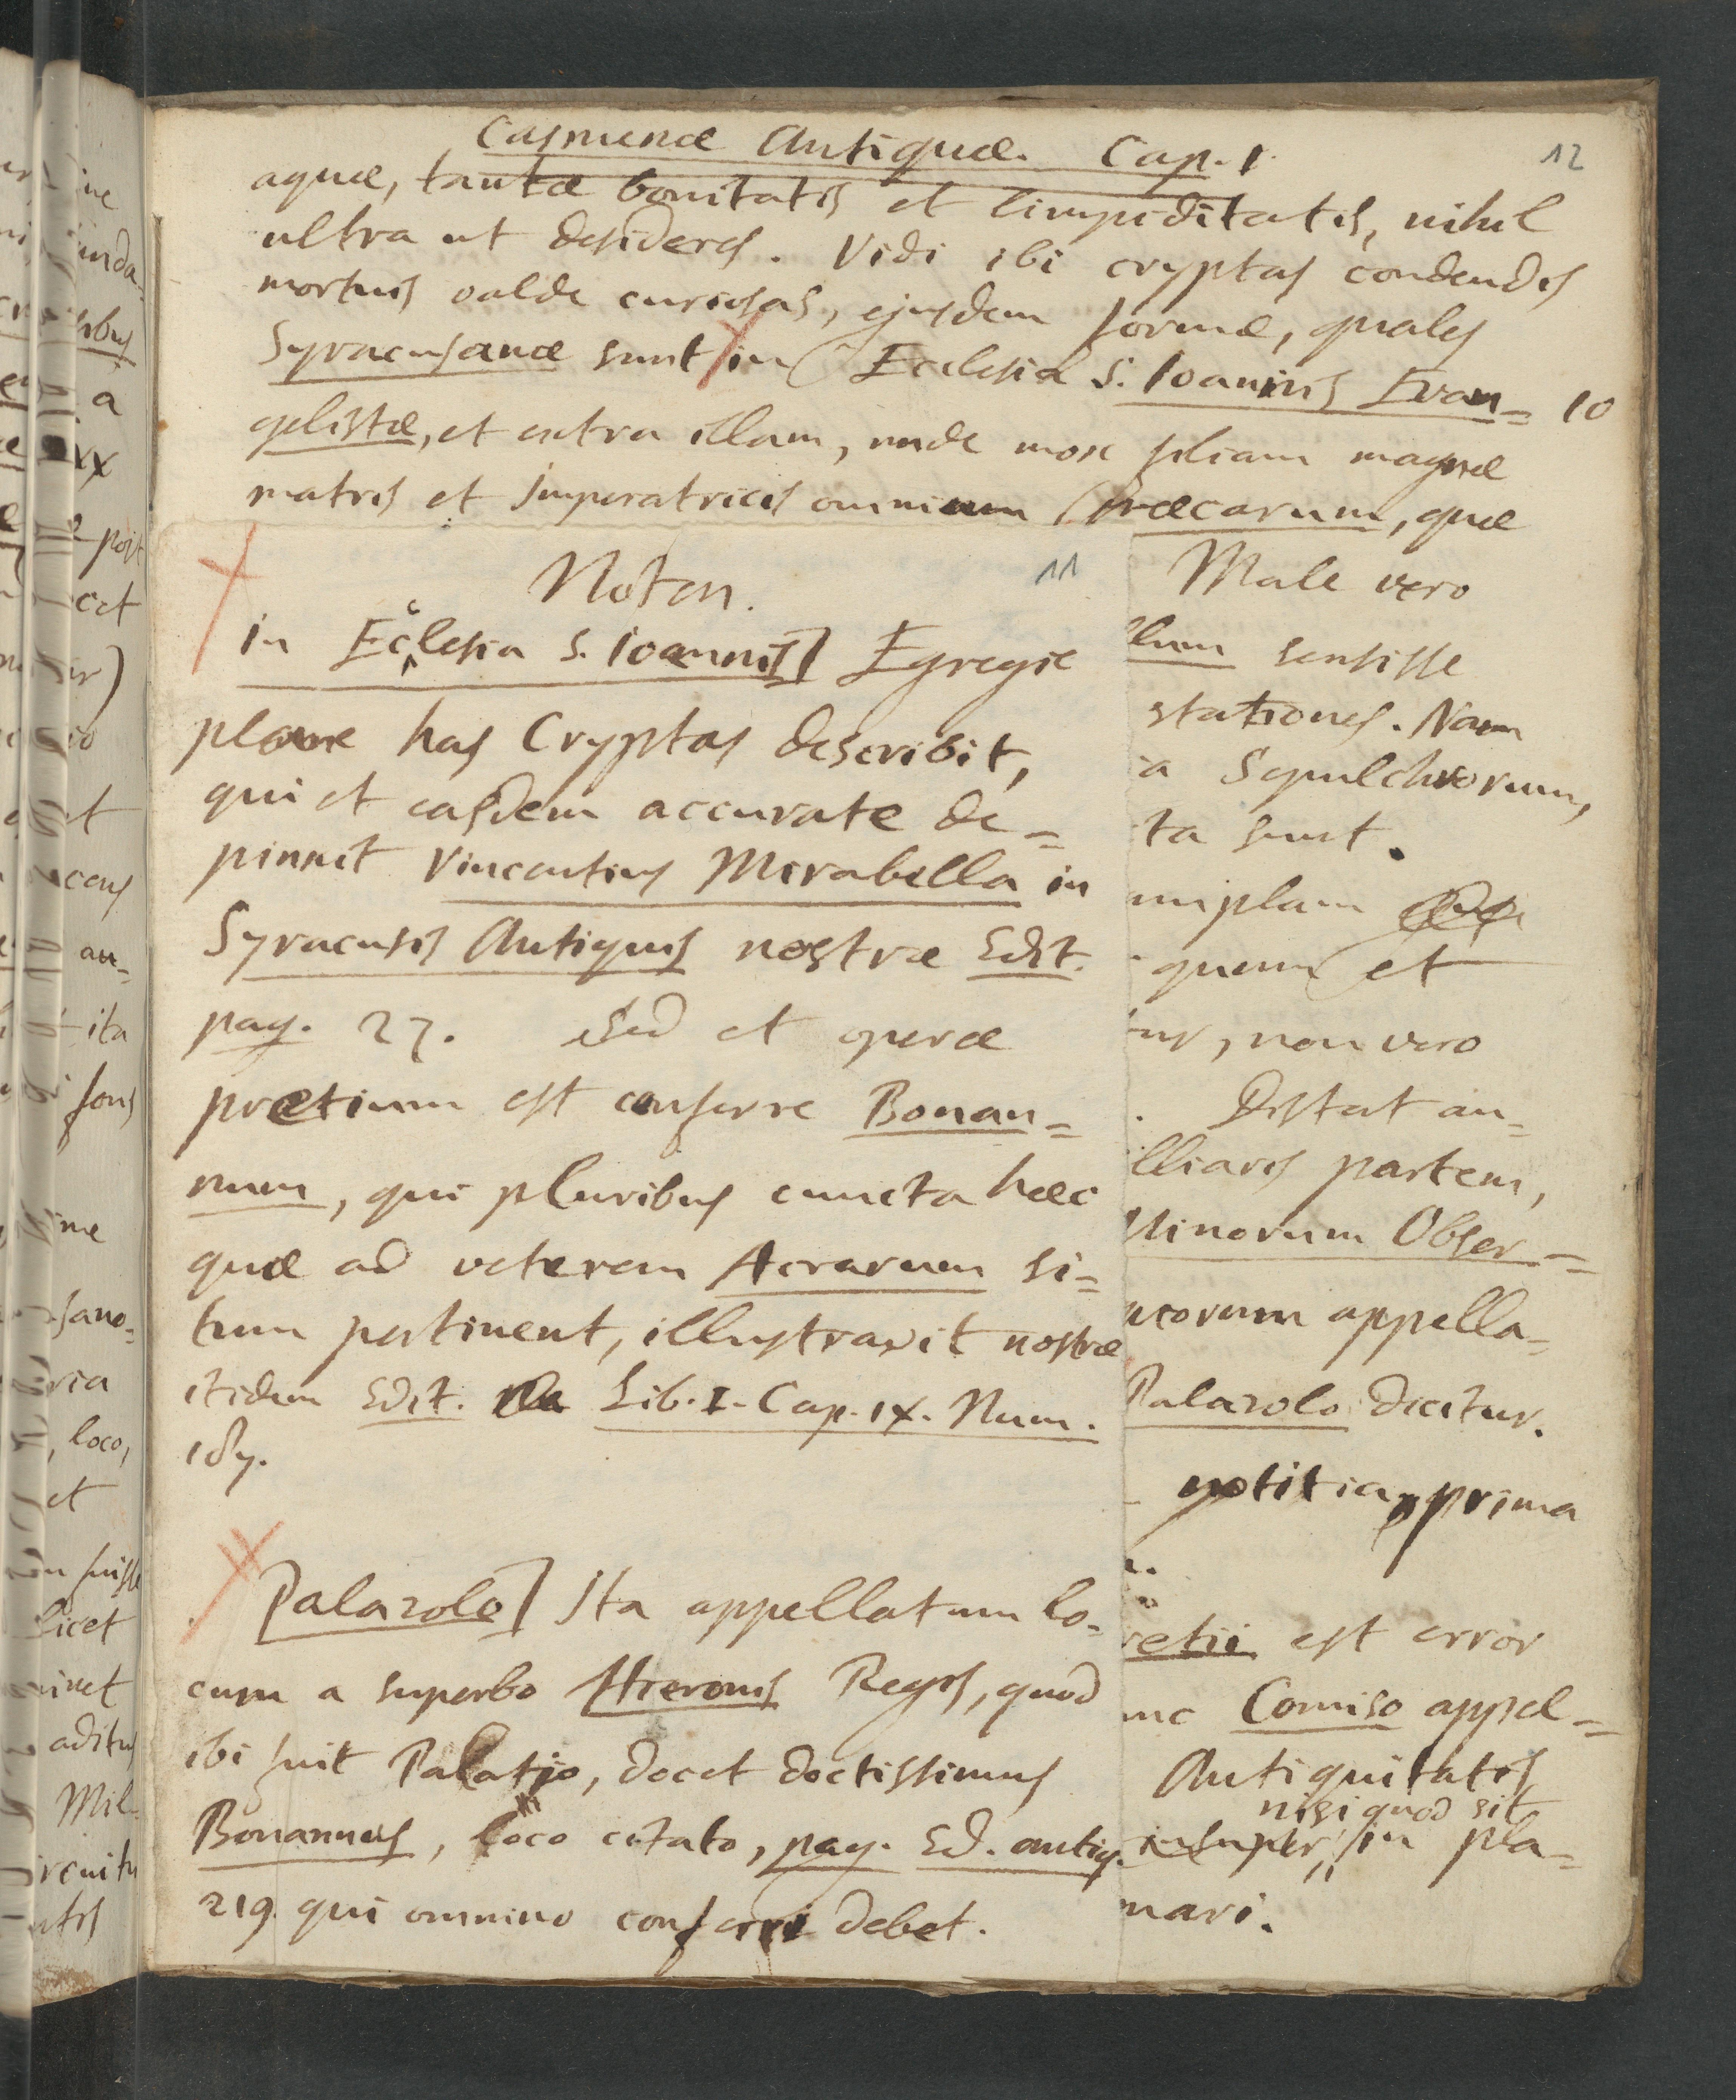 Casmenæ Antiquæ. Cap. I.
12
aquæ, tantæ bonitatis et limpiditatis, nihil
ultra ut desideres. Vidi ibi cryptas condendis
mortuis valde curiosas, ejusdem formæ, quales
Syracusanæ sunt in Ecclesia S. Ioannis Evan=
10
gelistæ, et extra illam, unde mox filiam magnæ
matris et Imperatricis omnium Græcarum, quæ
11
Noten.
in Ecclesia S. Ioannis] Egregie
plane has Cryptas describit,
qui et easdem accurate de=
pinxit Vincentius Mirabella in
Syracusis Antiquis nostræ Edit.
pag. 27. Sed et operæ
prætium est conferre Bonan=
num, qui pluribus cuncta hæc
quæ ad veterem Acrarum si=
tum pertinent, illustravit nostræ
itidem Edit. Lib. I. Cap. IX. Num.
Palazolo] Ita appellatum lo=
cum a superbo Hieronis Regis, quod
ibi fuit Palatio, docet doctissimus
Bonannus, loco citato, pag. Ed. antiq.
219. qui omnino conferri debet.
Male vero
lum sensisse
stationes. Nam
a Sepulchrorum,
ta sunt.
mplam
quem et
tur, non vero
. Distat an=
lliaris partem,
Minorum Obser=
corum appella=
Palazolo dicitur.
notitia, prima
retii est error
nc Comiso appel=
Antiquitatis
nisi quod sit
insuper, in pla=
mari.